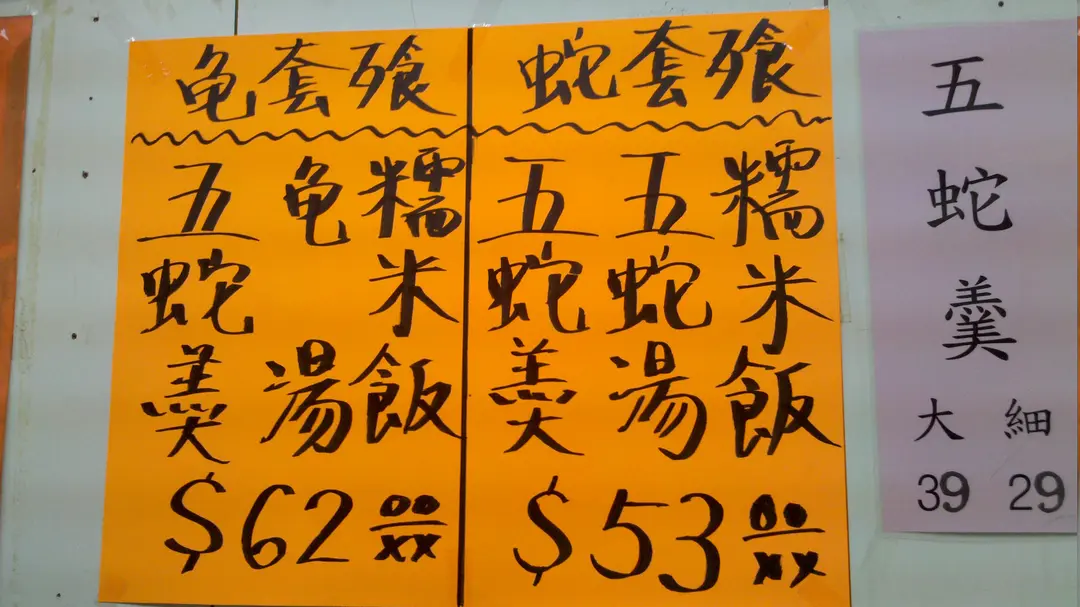 龟套飱
糯米飯
龟湯
五蛇羹
$62 00/xx
蛇套飱
糯米飯
五蛇湯
五蛇羹
$53 00/xx
五蛇羹
大 細
39 29